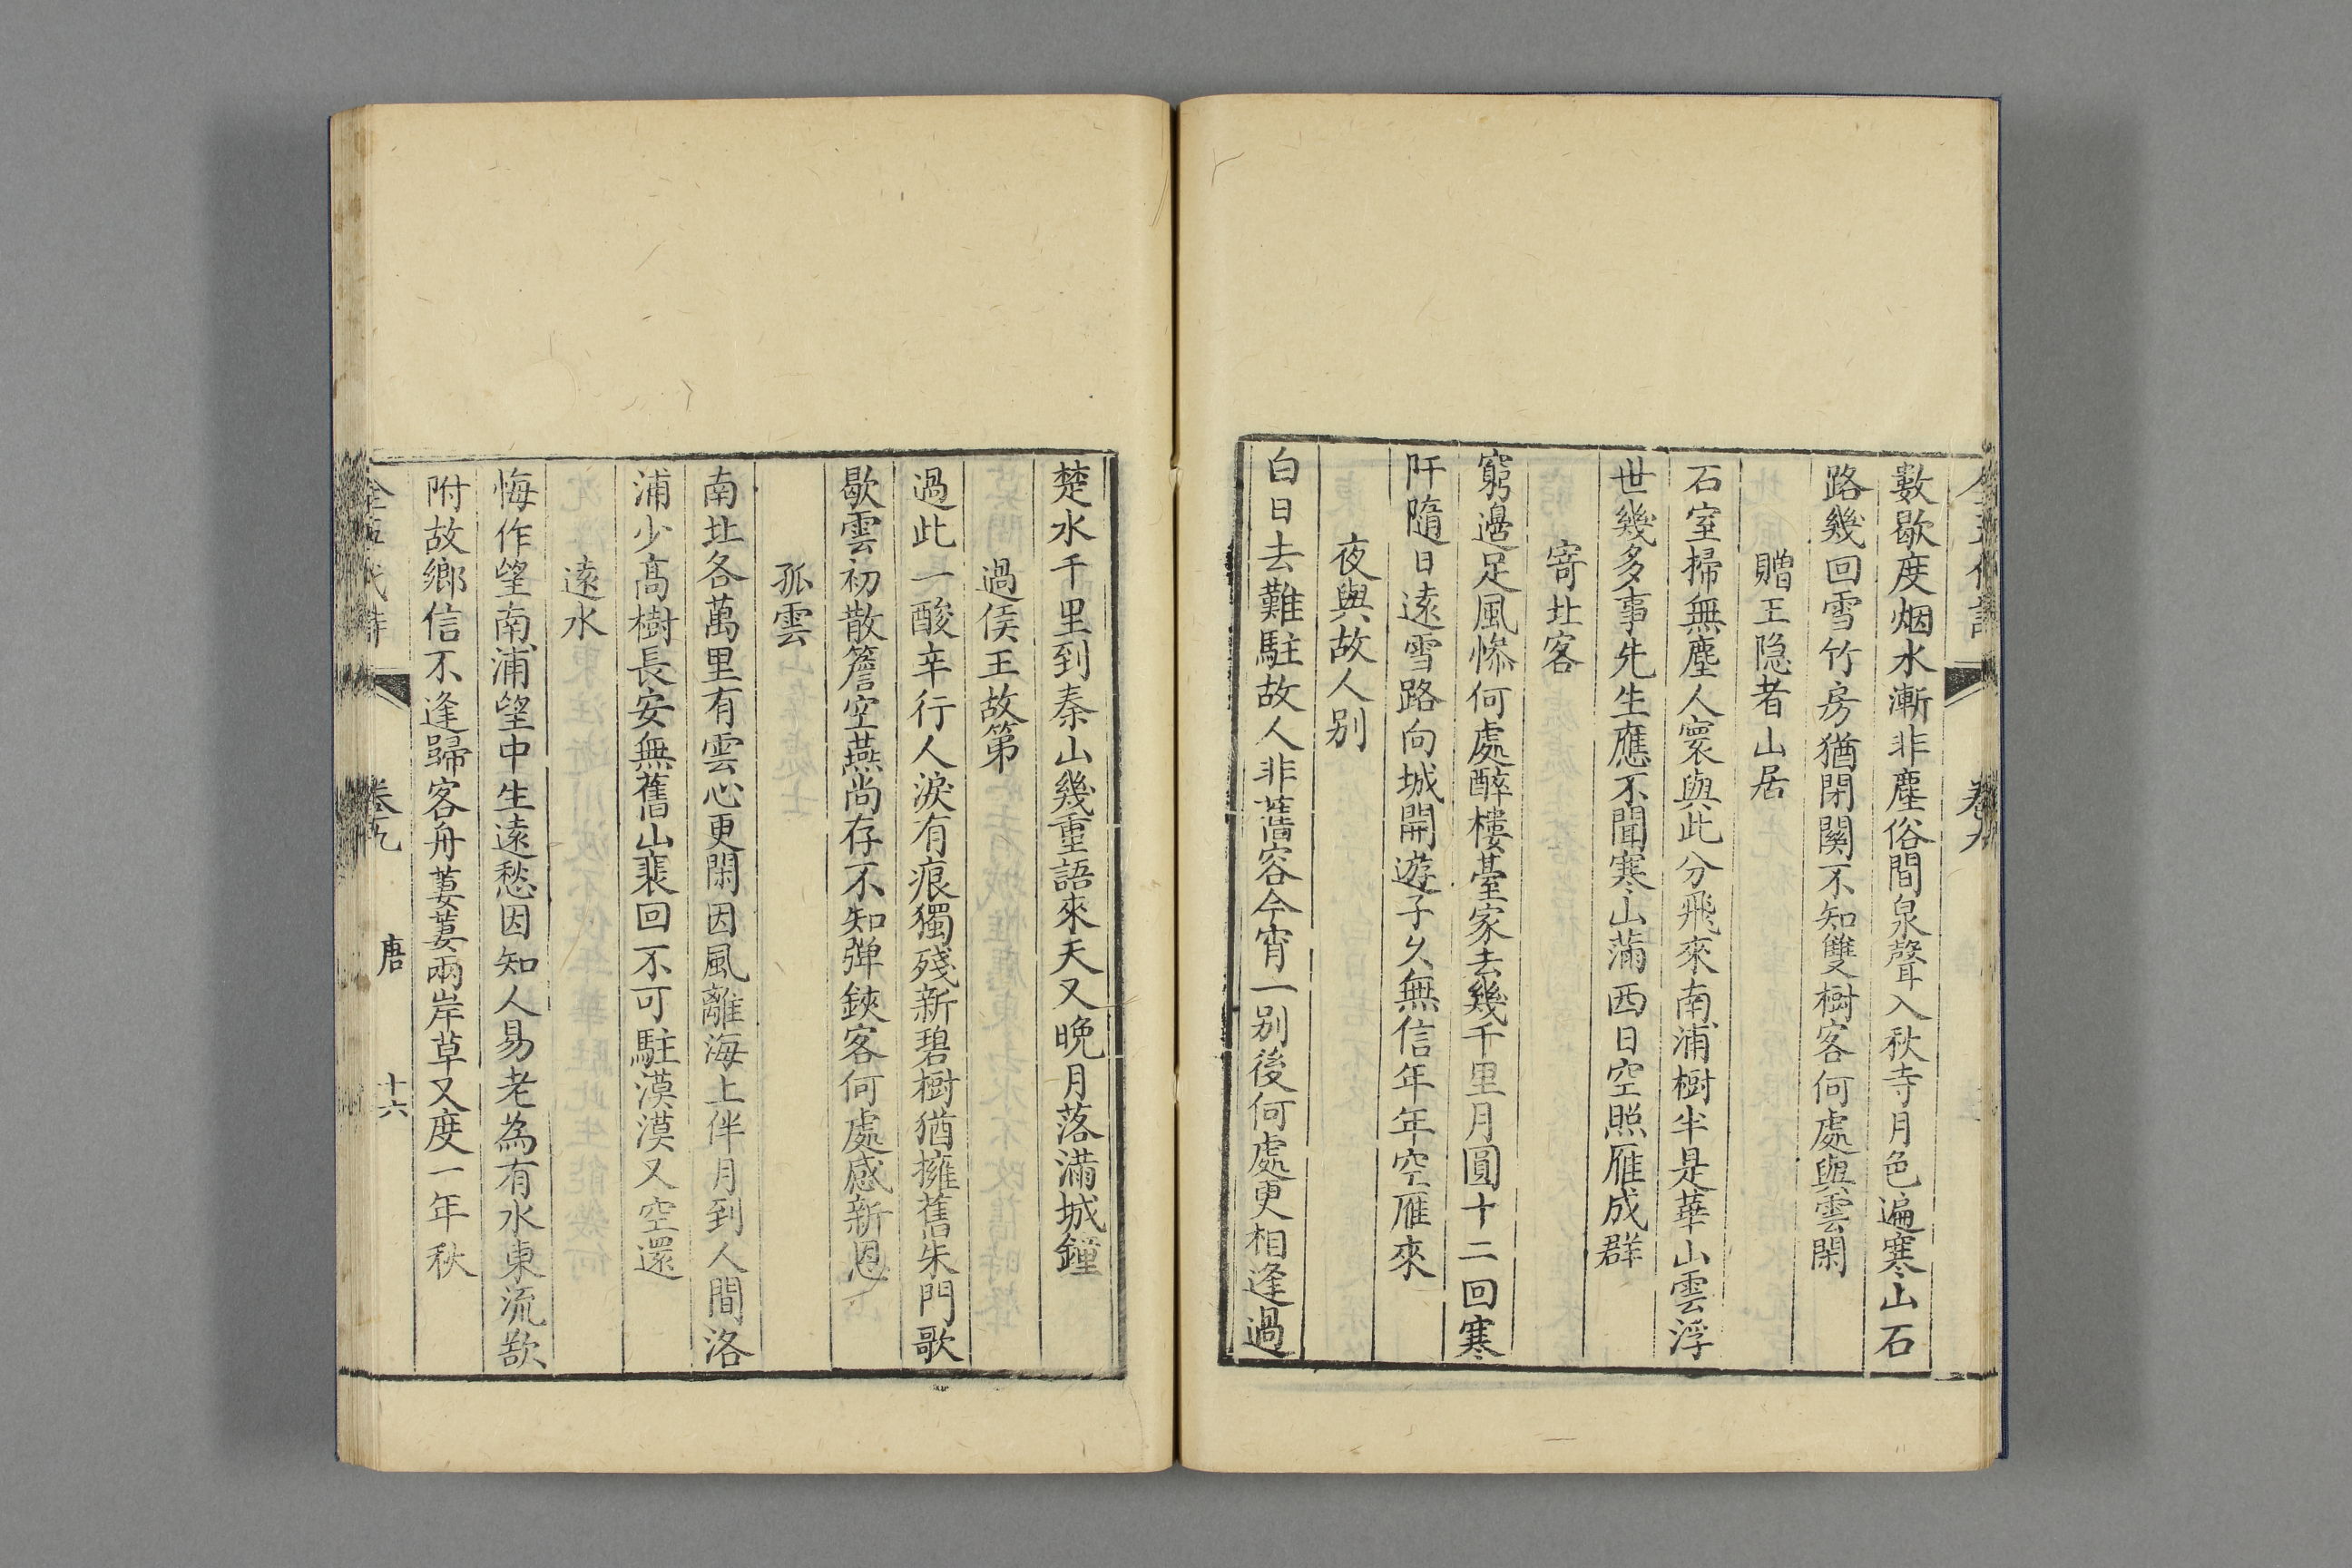 數歇度烟水漸非塵俗間泉聲入秋寺月色遍寒山石
路幾回雪竹房猶閉關不知雙樹客何處與雲閑
贈王隐者山居
石室掃無塵人寰與此分飛來南浦樹半是華山雲浮
世幾多事先生應不聞寒山滿西日空照雁成群
寄北客
窮邊足風慘何處醉樓臺家去幾千里月圓十二回寒
阡隨日遠雪路向城開遊子久無信年年空雁來
夜與故人别
白日去難駐故人非舊容今宵一别後何處更相逢過
楚水千里到秦山幾重語來天又晚月落滿城鐘
過侯王故第
過此一酸辛行人淚有痕獨殘新碧樹猶擁舊朱門歌
歇雲初散簷空燕尚存不知彈鋏客何處感新恩
孤雲
南北各萬里有雲心更閑因風離海上伴月到人間洛
浦少髙樹長安無舊山裴回不可駐漠漠又空還
遠水
悔作望南浦望中生遠愁因知人易老為有水東流歎
附故鄉信不逢歸客舟萋萋兩岸草又度一年秋
卷九
唐
十六